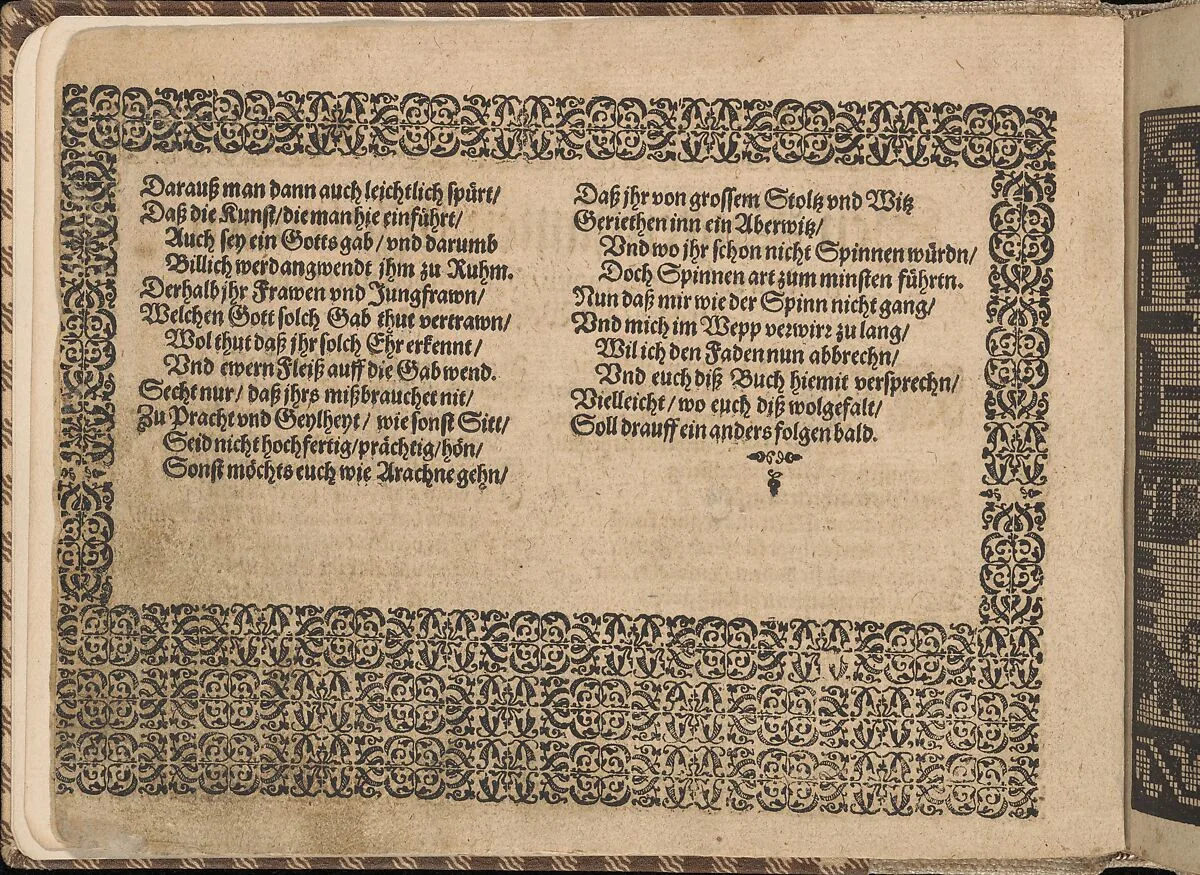 Darauß man dann auch leichtlich spürt/
Daß die Kunst/ die man hie einführt/
Auch sey ein Gotts gab/ vnd darumb
Billich werd angwendt jhm zu Ruhm.
Derhalb jhr Frawen vnd Jungfrawn/
Welchen Gott solch Gab thut vertrawn/
Wol thut daß jhr solch Ehr erkennt/
Vnd ewern Fleiß auff die Gab wend.
Secht nur/ daß jhrs mißbrauchet nit/
Zu Pracht vnd Geylheyt/ wie sonst Sitt/
Seid nicht hochfertig/ prächtig/ hön/
Sonst möchts euch wie Arachne gehn/
Daß jhr von grossem Stoltz vnd Witz
Geriethen inn ein Aberwitz/
Vnd wo jhr schon nicht Spinnen würdn/
Doch Spinnen art zum minsten führtn.
Nun daß mir wie der Spinn nicht gang/
Vnd mich im Wepp verwirr zu lang/
Wil ich den Faden nun abbrechn/
Vnd euch diß Buch hiemit versprechn/
Vielleicht/ wo euch diß wolgefalt/
Soll drauff ein anders folgen bald.